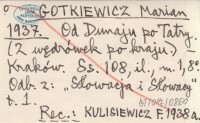 GOTKIEWICZ Marian
1937. Od Dunaju po Tatry.
(Z wędrówek po kraju)
Kraków. Ss. 108, il., m., 8°
Odb. z: „Słowacja i Słowacy"
t. 1.
Rec.: KULISIEWICZ F. 1938 a.